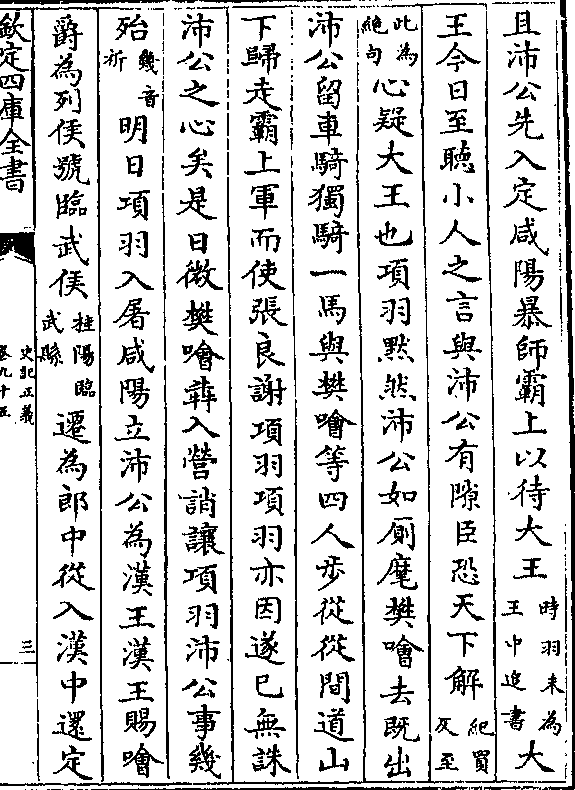 且沛公先入定咸陽暴師霸上以待大王時羽未為王史追書大
王今日至聽小人之言與沛公有隙臣恐天下解紀買反至
此為絕句心疑大王也項羽黙然沛公如厠麾樊噲去既出
沛公留車騎獨騎一馬與樊噲等四人歩從從間道山
下歸走霸上軍而使張良謝項羽項羽亦因遂已無誅
沛公之心矣是日微樊噲犇入營誚讓項羽沛公事幾
殆幾音祈明日項羽入屠咸陽立沛公為漢王漢王賜噲
爵為列侯號臨武侯桂陽臨武縣遷為郎中從入漢中還定
欽定四庫全書
史記正義
卷九十五
三